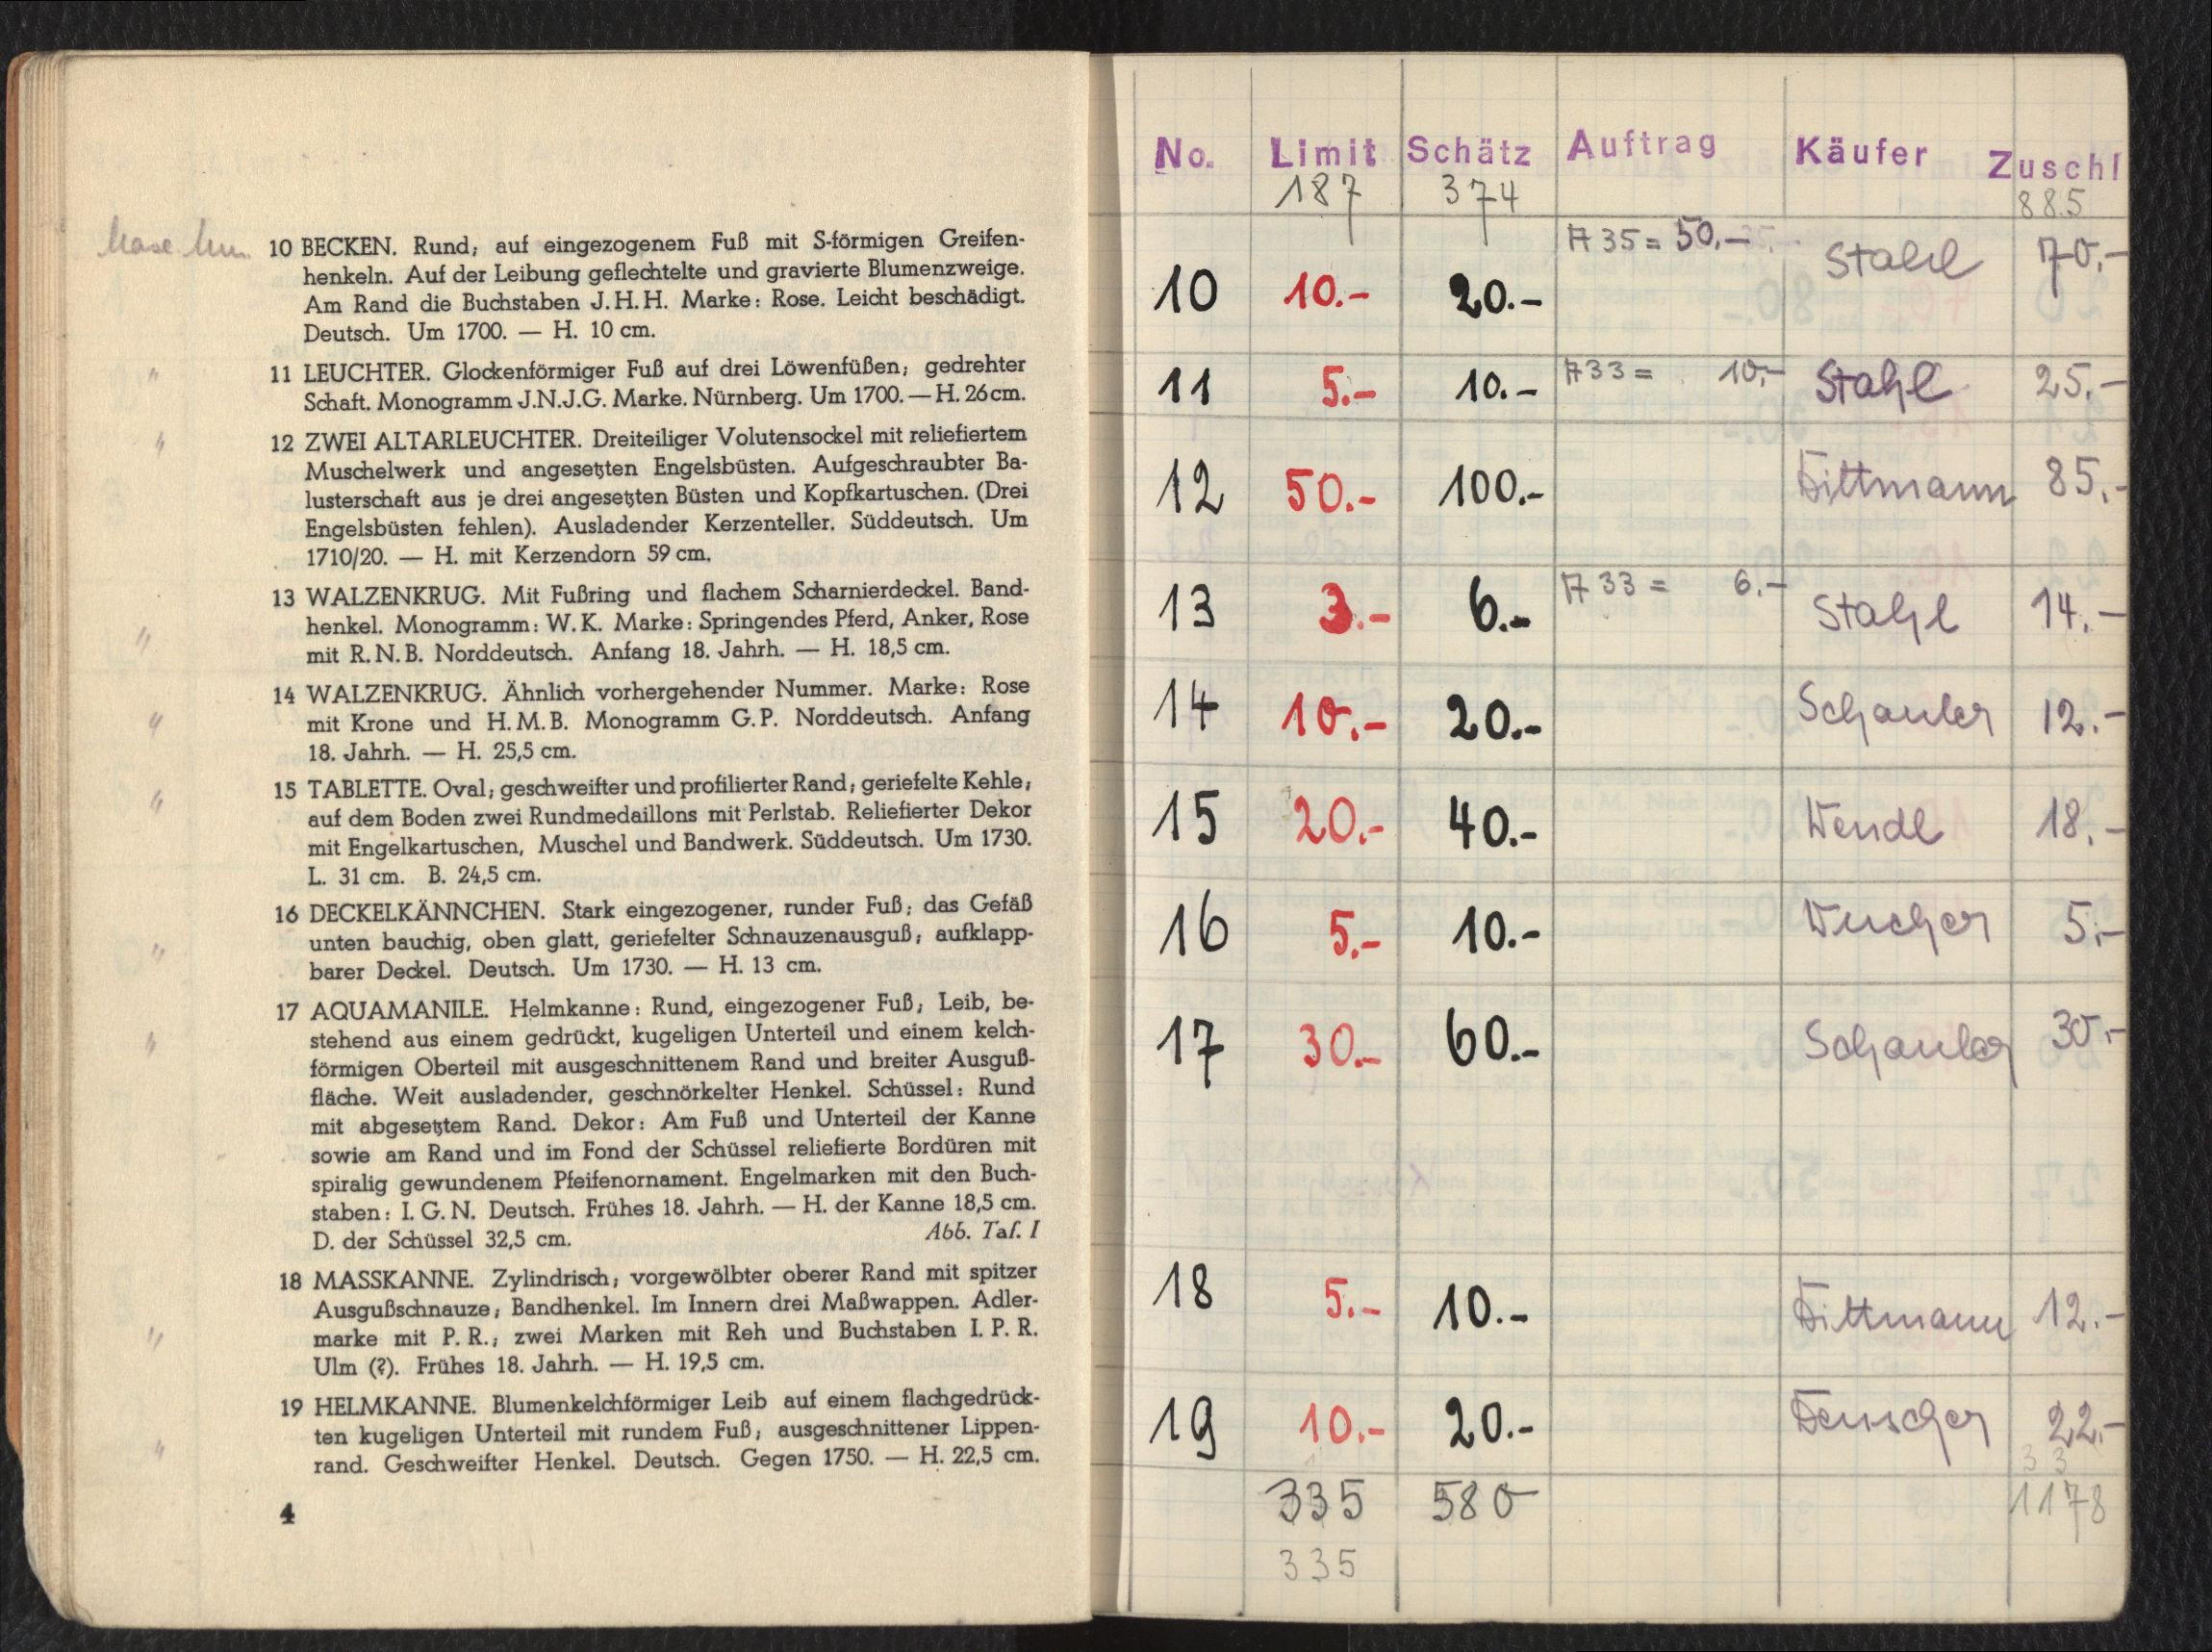 10 BECKEN. Rund; auf eingezogenem Fuß mit S-förmigen Greifen-
henkeln. Auf der Leibung geflechtelte und gravierte Blumenzweige.
Am Rand die Buchstaben J.H.H. Marke: Rose. Leicht beschädigt.
Deutsch. Um 1700. — H. 10 cm.
11 LEUCHTER. Glockenförmiger Fuß auf drei Löwenfüßen; gedrehter
Schaft. Monogramm J.N.J.G. Marke. Nürnberg. Um 1700. — H. 26 cm.
12 ZWEI ALTARLEUCHTER. Dreiteiliger Volutensockel mit reliefiertem
Muschelwerk und angesetzten Engelsbüsten. Aufgeschraubter Ba-
lusterschaft aus je drei angesetzten Büsten und Kopfkartuschen. (Drei
Engelsbüsten fehlen). Ausladender Kerzenteller. Süddeutsch. Um
1710/20. — H. mit Kerzendorn 59 cm.
13 WALZENKRUG. Mit Fußring und flachem Scharnierdeckel. Band-
henkel. Monogramm: W.K. Marke: Springendes Pferd, Anker, Rose
mit R.N.B. Norddeutsch. Anfang 18. Jahrh. — H. 18,5 cm.
14 WALZENKRUG. Ähnlich vorhergehender Nummer. Marke: Rose
mit Krone und H.M.B. Monogramm G.P. Norddeutsch. Anfang
18. Jahrh. — H. 25,5 cm.
15 TABLETTE. Oval; geschweifter und profilierter Rand; geriefelte Kehle;
auf dem Boden zwei Rundmedaillons mit Perlstab. Reliefierter Dekor
mit Engelkartuschen, Muschel und Bandwerk. Süddeutsch. Um 1730.
L. 31 cm. B. 24,5 cm.
16 DECKELKÄNNCHEN. Stark eingezogener, runder Fuß; das Gefäß
unten bauchig, oben glatt, geriefelter Schnauzenausguß; aufklapp-
barer Deckel. Deutsch. Um 1730. — H. 13 cm.
17 AQUAMANILE. Helmkanne: Rund, eingezogener Fuß; Leib, be-
stehend aus einem gedrückt, kugeligen Unterteil und einem kelch-
förmigen Oberteil mit ausgeschnittenem Rand und breiter Ausguß-
fläche. Weit ausladender, geschnörkelter Henkel. Schüssel: Rund
mit abgesetztem Rand. Dekor: Am Fuß und Unterteil der Kanne
sowie am Rand und im Fond der Schüssel reliefierte Bordüren mit
spiralig gewundenem Pfeifenornament. Engelmarken mit den Buch-
staben: I. G. N. Deutsch. Frühes 18. Jahrh. — H. der Kanne 18,5 cm.
D. der Schüssel 32,5 cm. Abb. Taf. I
18 MASSKANNE. Zylindrisch; vorgewölbter oberer Rand mit spitzer
Ausgußschnauze; Bandhenkel. Im Innern drei Maßwappen. Adler-
marke mit P. R.; zwei Marken mit Reh und Buchstaben I. P. R.
Ulm (?). Frühes 18. Jahrh. — H. 19,5 cm.
19 HELMKANNE. Blumenkelchförmiger Leib auf einem flachgedrück-
ten kugeligen Unterteil mit rundem Fuß; ausgeschnittener Lippen-
rand. Geschweifter Henkel. Deutsch. Gegen 1750. — H. 22,5 cm.
4
No. Limit Schätz Auftrag Käufer Zuschl
187 374 885
10 10.- 20.- A 35 = 50,- Stahl 70,-
11 5.- 10.- A 33 = 10,- Stahl 25,-
12 50.- 100.- Dittmann 85,-
13 3.- 6.- A 33 = 6,- Stahl 14,-
14 10.- 20.- Schauler 12,-
15 20.- 40.- Wendl 18,-
16 5.- 10.- 5,-
17 30.- 60.- Schauler 30,-
18 5.- 10.- Dittmann 12,-
19 10.- 20.- 22,-
33
335 580 1178
335